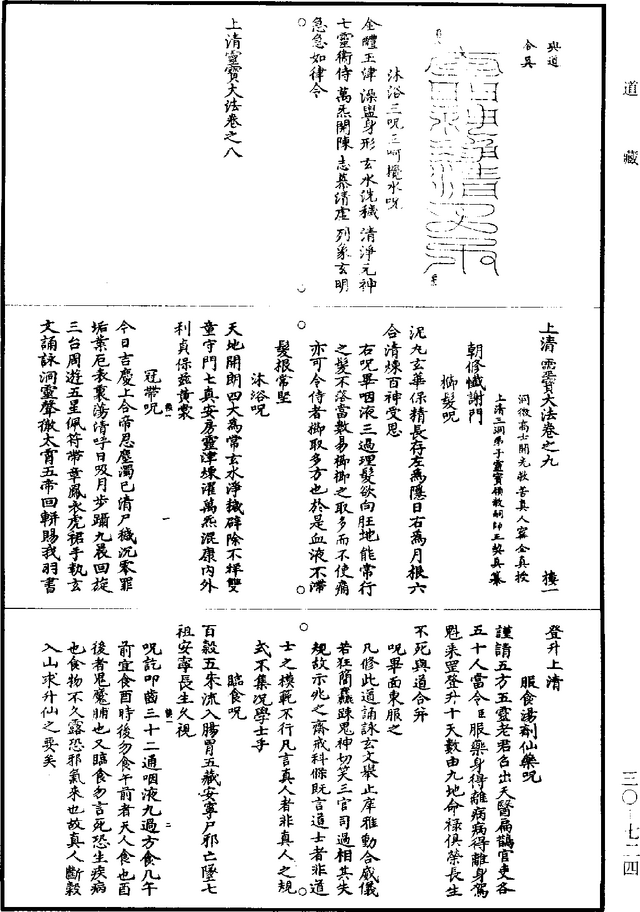 道藏
與道
合真
沐浴三呪三呵攪水呪
金醴玉津澡盥身形玄水洗穢清淨元神
七靈衛侍萬炁開陳志慕清虛列象玄明
急急如律令
上清靈寶大法卷之八
上清靈寶大法卷之九
洞微高士開光救苦真人甯全真授
上清三洞弟子靈寶領教嗣師王契真纂
朝修懺謝門
櫛髮呪
泥丸玄華保精長存左為隱日右為月根六
合清煉百神受恩
右呪畢咽液三過理髮欲向旺地能常行
之髮不落當數易櫛櫛之取多而不使痛
亦可令侍者櫛取多方也於是血液不滯
髮根常堅
沐浴呪
天地開朗四大為常玄水淨穢辟除不祥雙
童守門七真安房靈津煉濯萬炁混康內外
利貞保茲黃裳
冠帶呪
今日吉慶上合帝恩塵濁已清尸穢沉零罪
垢業厄表裏蕩清呼日吸月步躡九晨回旋
三台周遊五星佩符帶章鳳衣虎裙手執玄
文誦詠洞靈聲徹太霄五帝回軿賜我羽書
登升上清
服食湯劑仙藥呪
謹請五方五靈老君名出天醫扁鵲官吏各
五十人當令臣服藥身得離病病得離身駕
魁乘罡登升十天數由九地命祿俱榮長生
不死與道合并
呪畢面東服之
凡修此道誦詠玄文舉止庠雅動合威儀
若狂簡麤踈鬼神切笑三官司過相其失
規故示兆之齋戒科條既言道士者非道
士之模範不行凡言真人者非真人之規
式不集況學士乎
臨食呪
百穀五朱流入腸胃五藏安寧尸邪亡墜七
祖安寧長生久視
呪訖叩齒三十二通咽液九過方食几午
前宜食酉時後勿食午前者天人食也酉
後者鬼魔脯也又臨食勿言死恐生疾病
也食物不久露恐邪氣來也故真人斷穀
入山求升仙之要矣
三〇-七二四